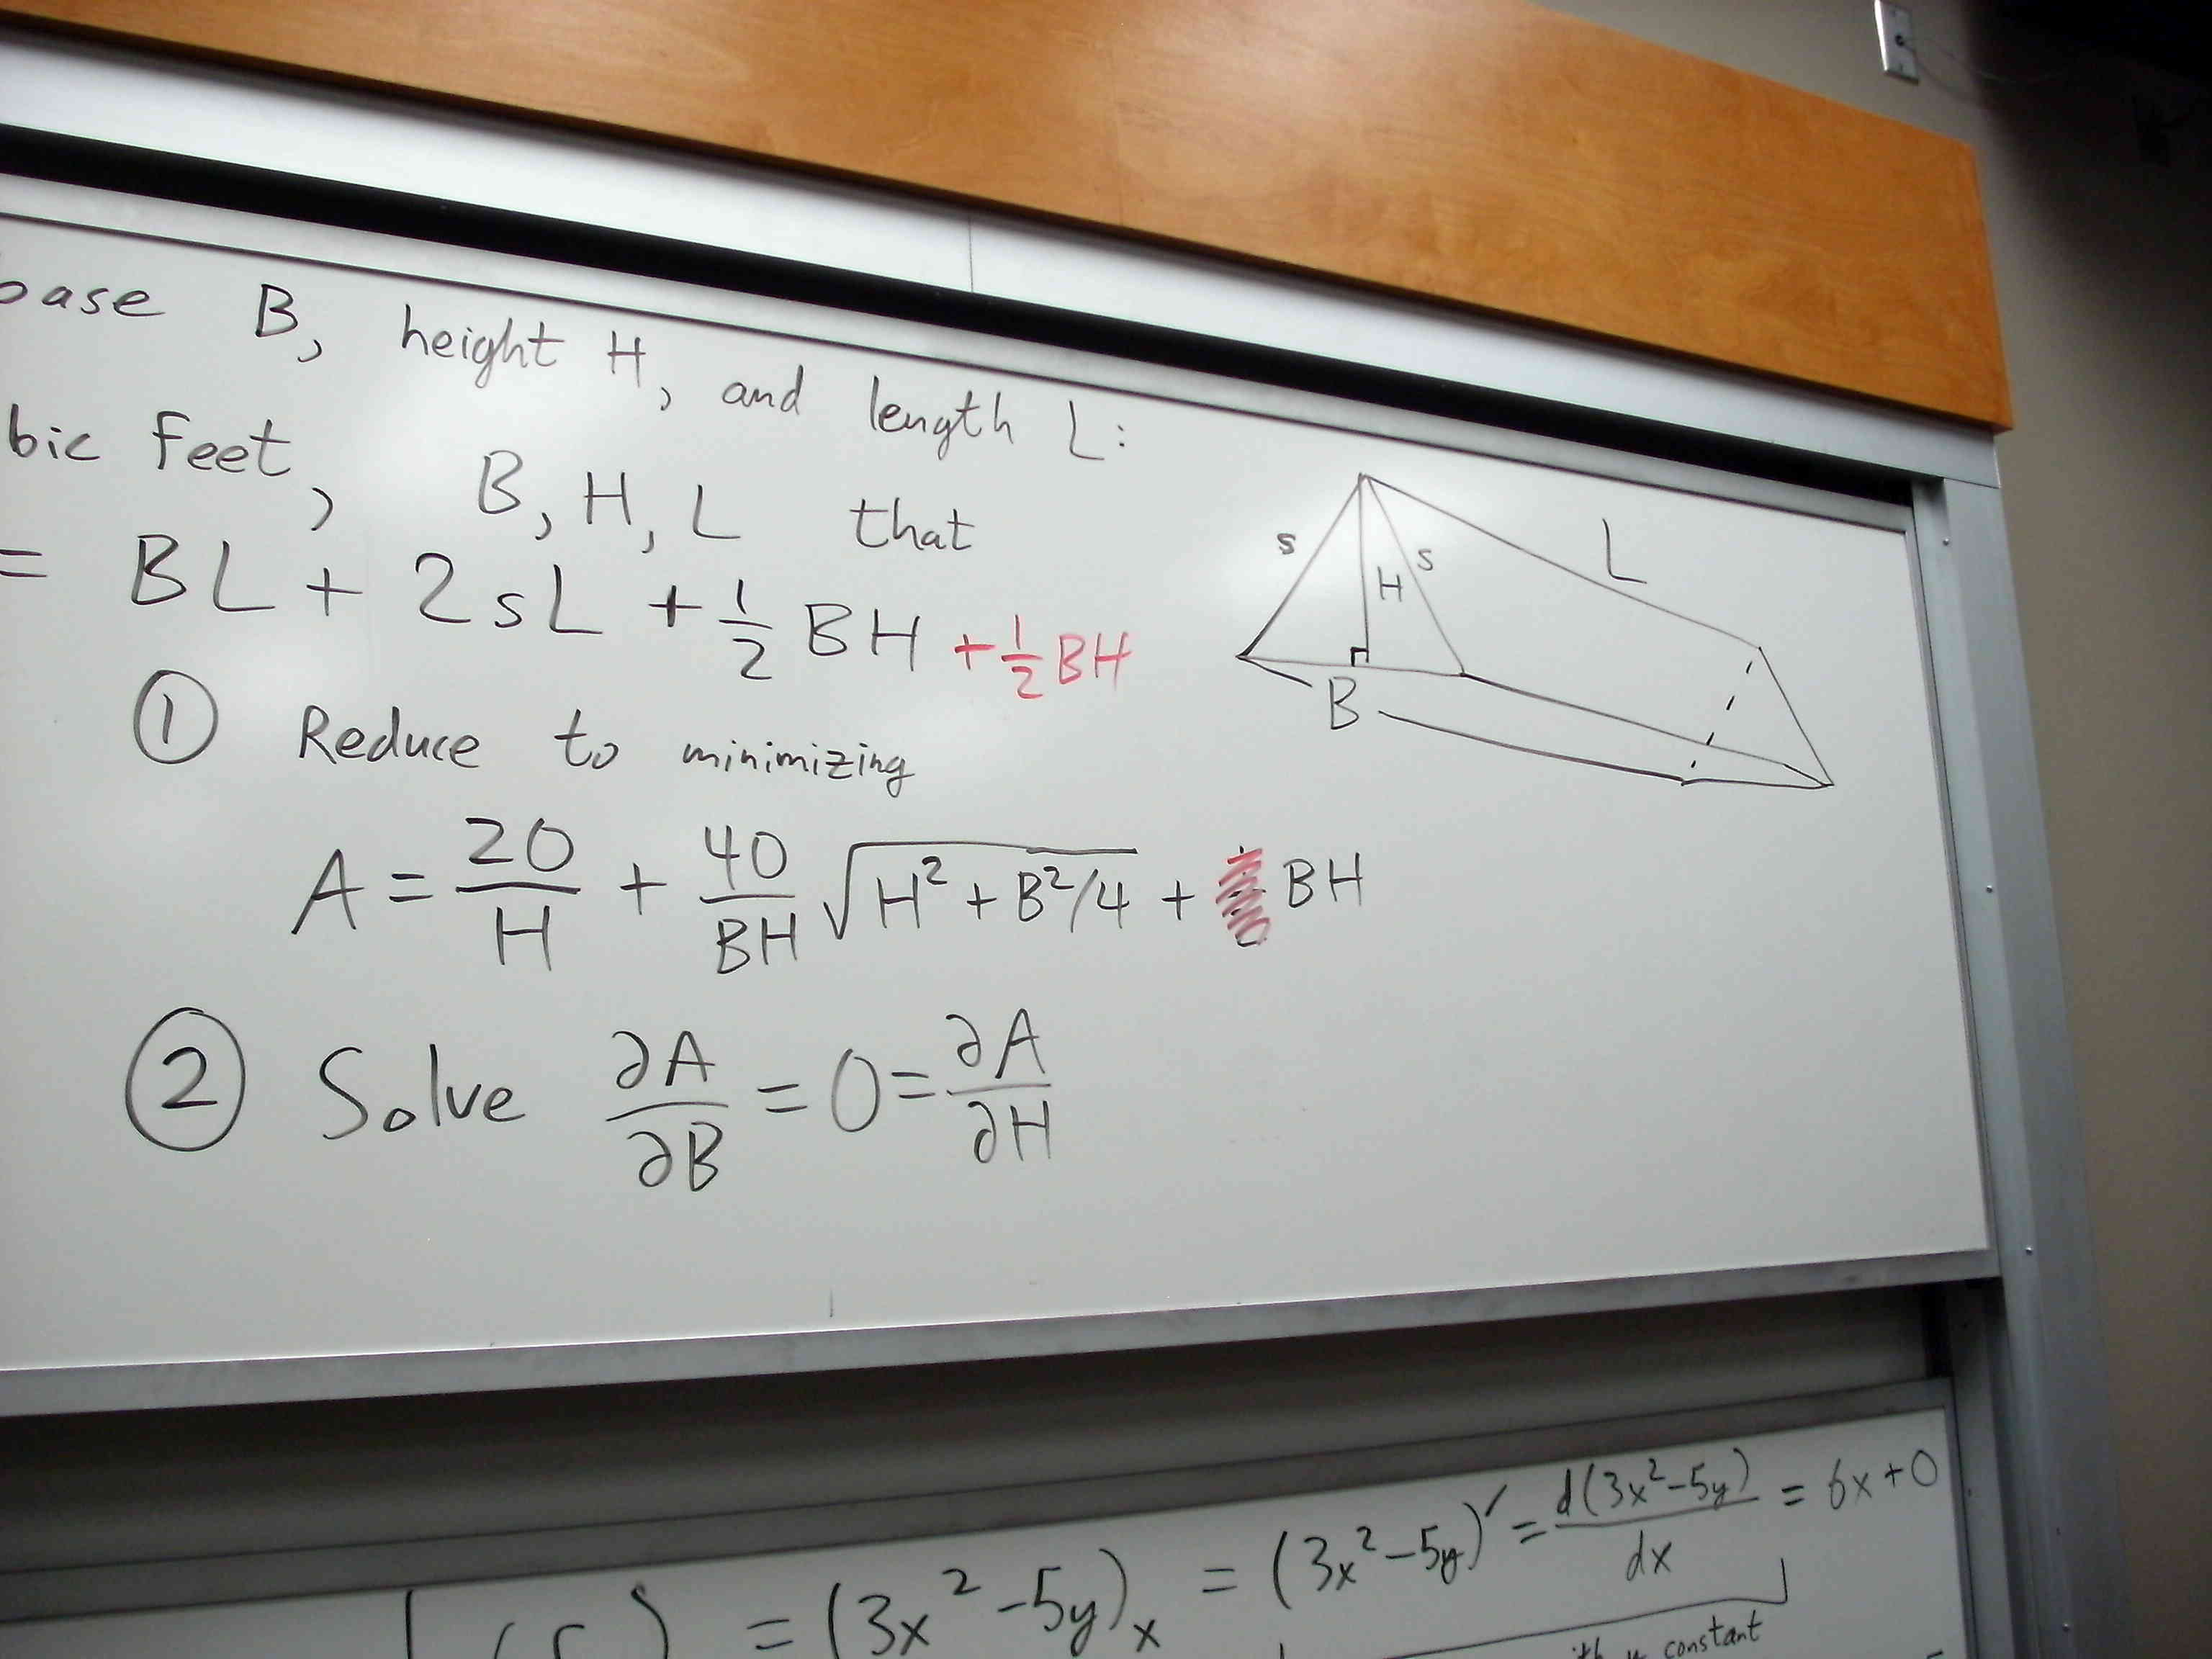 base B, height H, and length L:
bic feet, B, H, L that
= BL + 2sL + 1/2 BH + 1/2 BH
① Reduce to minimizing
A = 20/H + 40/BH √(H² + B²/4) + BH
② Solve ∂A/∂B = 0 = ∂A/∂H
s H s L
B
= (3x² - 5y)ₓ = (3x² - 5y)′ = d(3x² - 5y)/dx = 6x + 0
constant